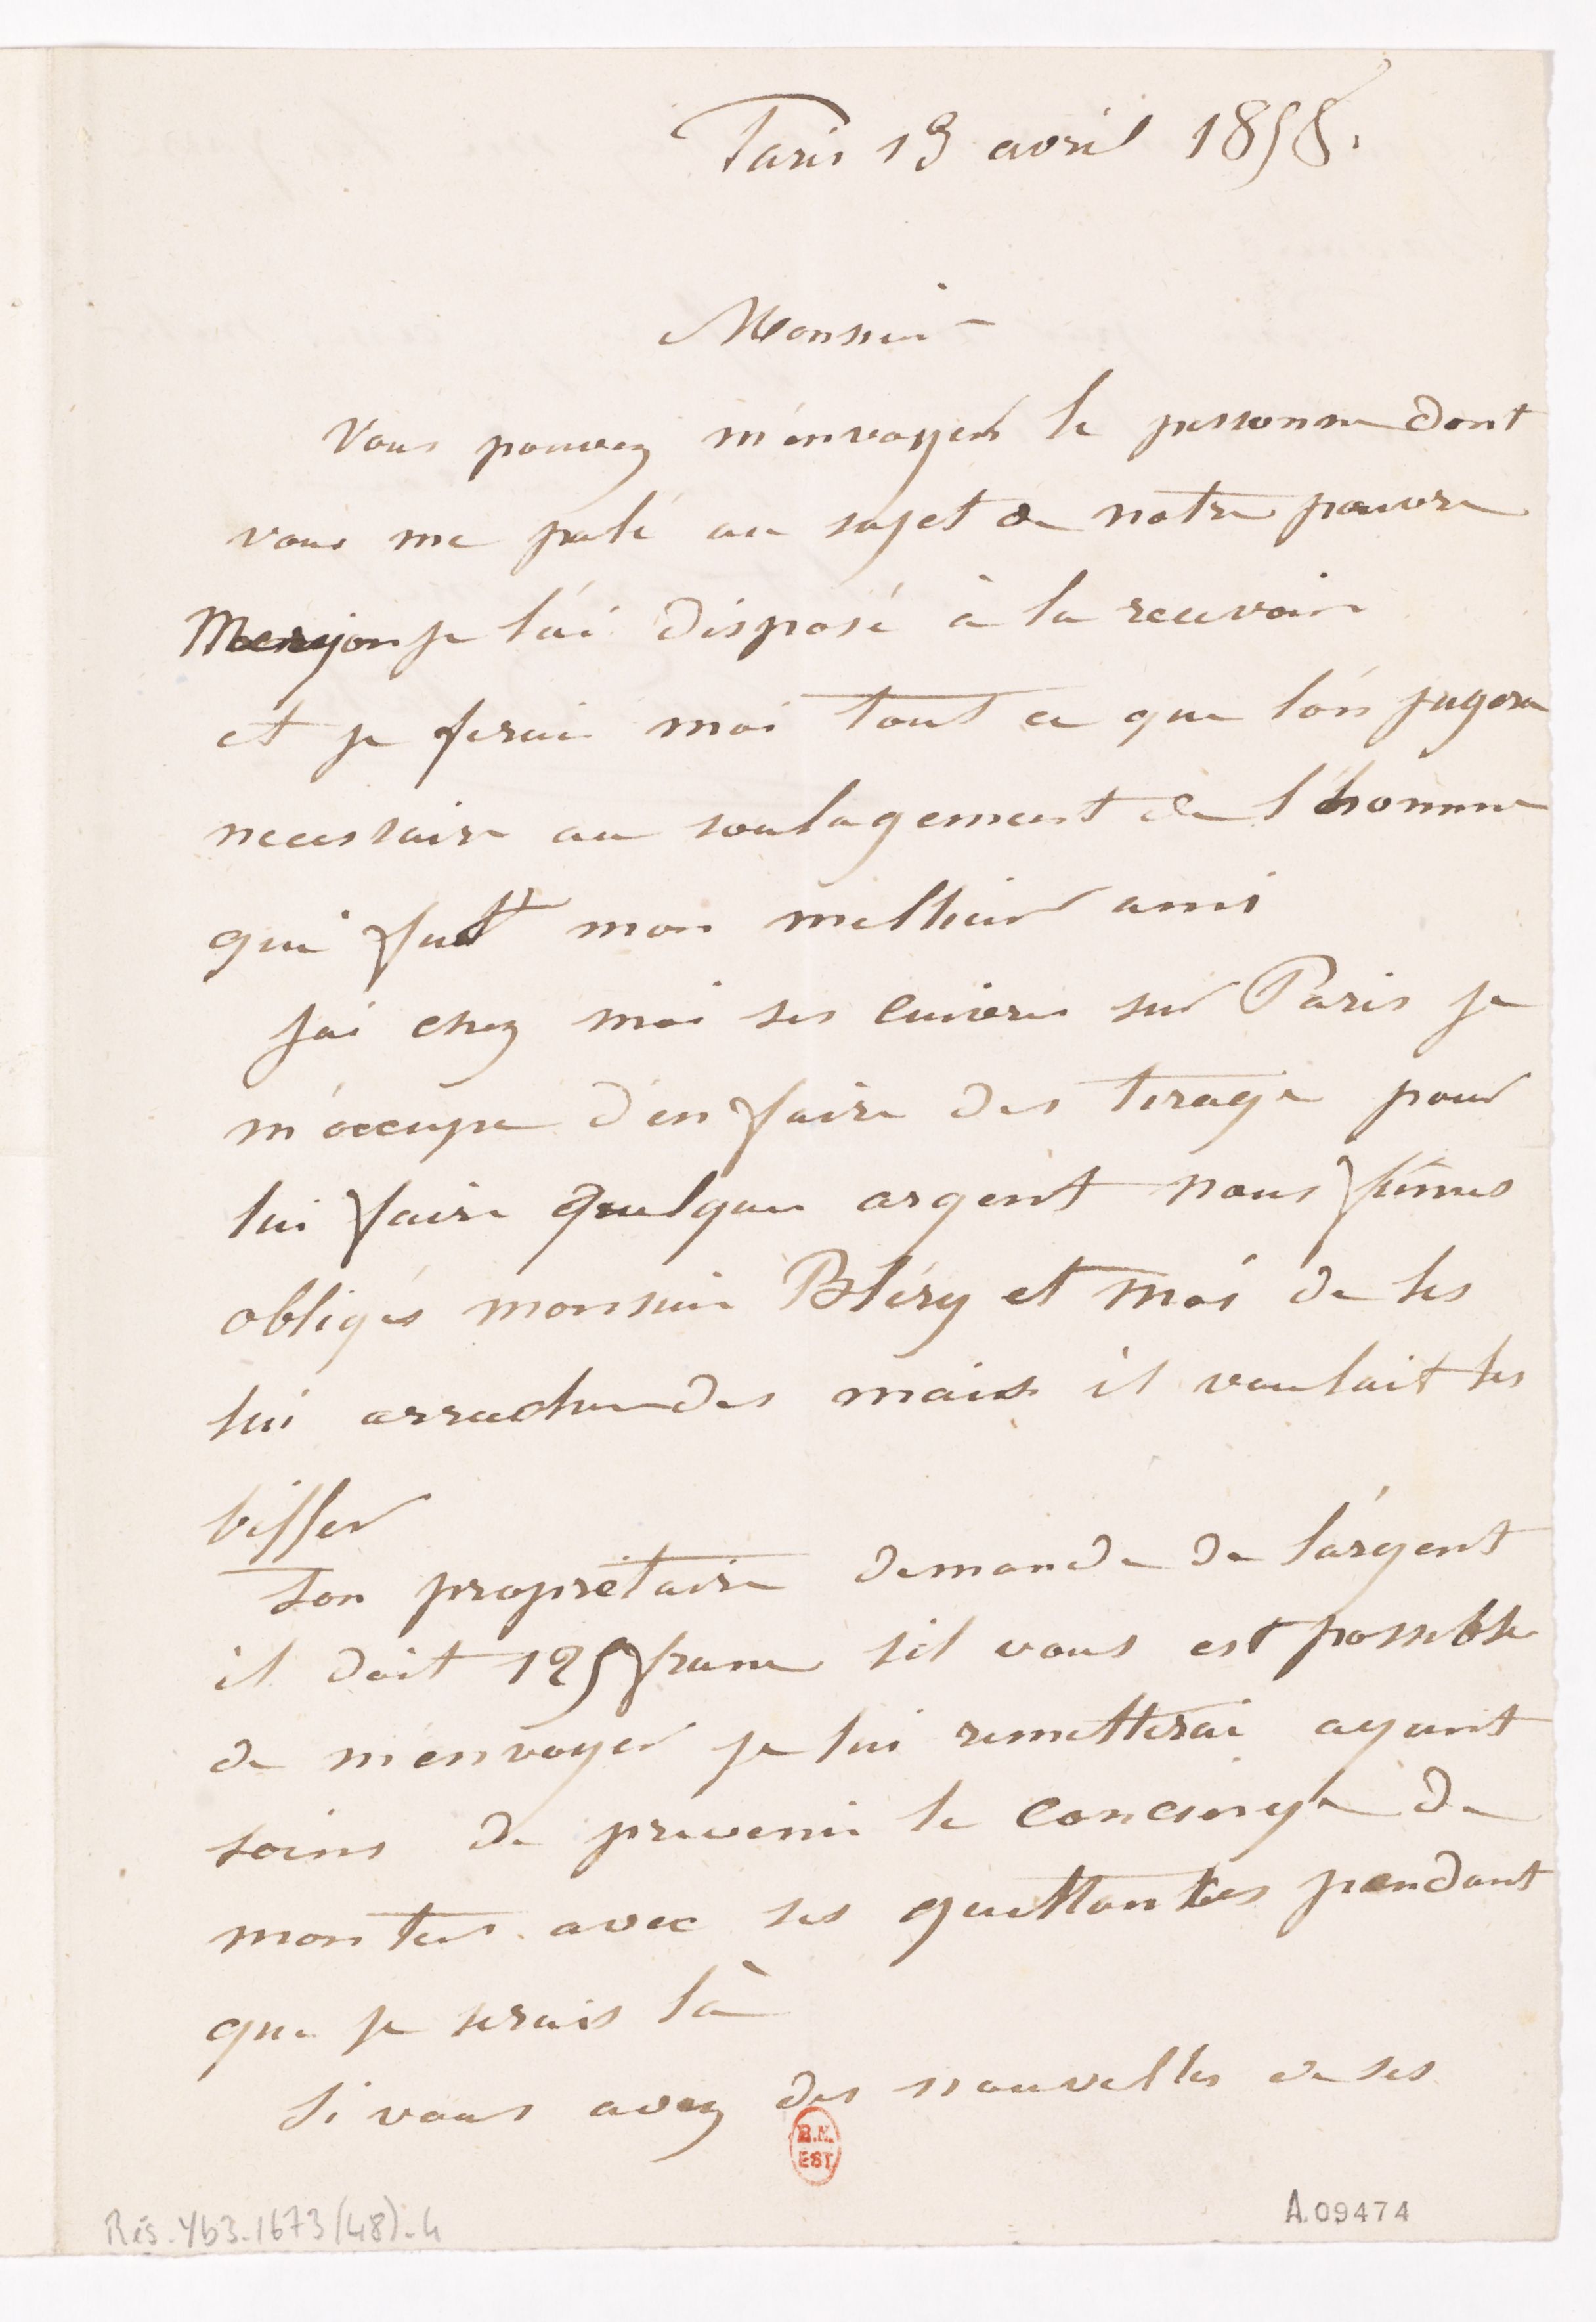 Paris 19 avril 1858.
Monsieur
Vous pouvez m'envoyer la personne dont
vous me parlé au sujet de notre pauvre
Meryon je l'ai disposé à la recevoir
et je ferai moi tout ce que l'on jugera
necessaire au soulagement de l'homme
qui fut mon meilleur ami
J'ai chez moi ses cuivres sur Paris je
m'occupe d'en faire des tirage pour
lui faire quelque argent nous fûmes
obligés monsieur Bléry et moi de les
lui arracher des mains il voulait les
biffer
Son propriétaire demande de l'argent
il doit 125 franc s'il vous est possible
de m'envoyer je lui remetterai ayant
soins de prevenir le concierge de
monter avec ses quittances pendant
que je serais là
Si vous avez des nouvelles de ses
B.N.
EST.
Rés. Yb3.1673(48).4
A.09474